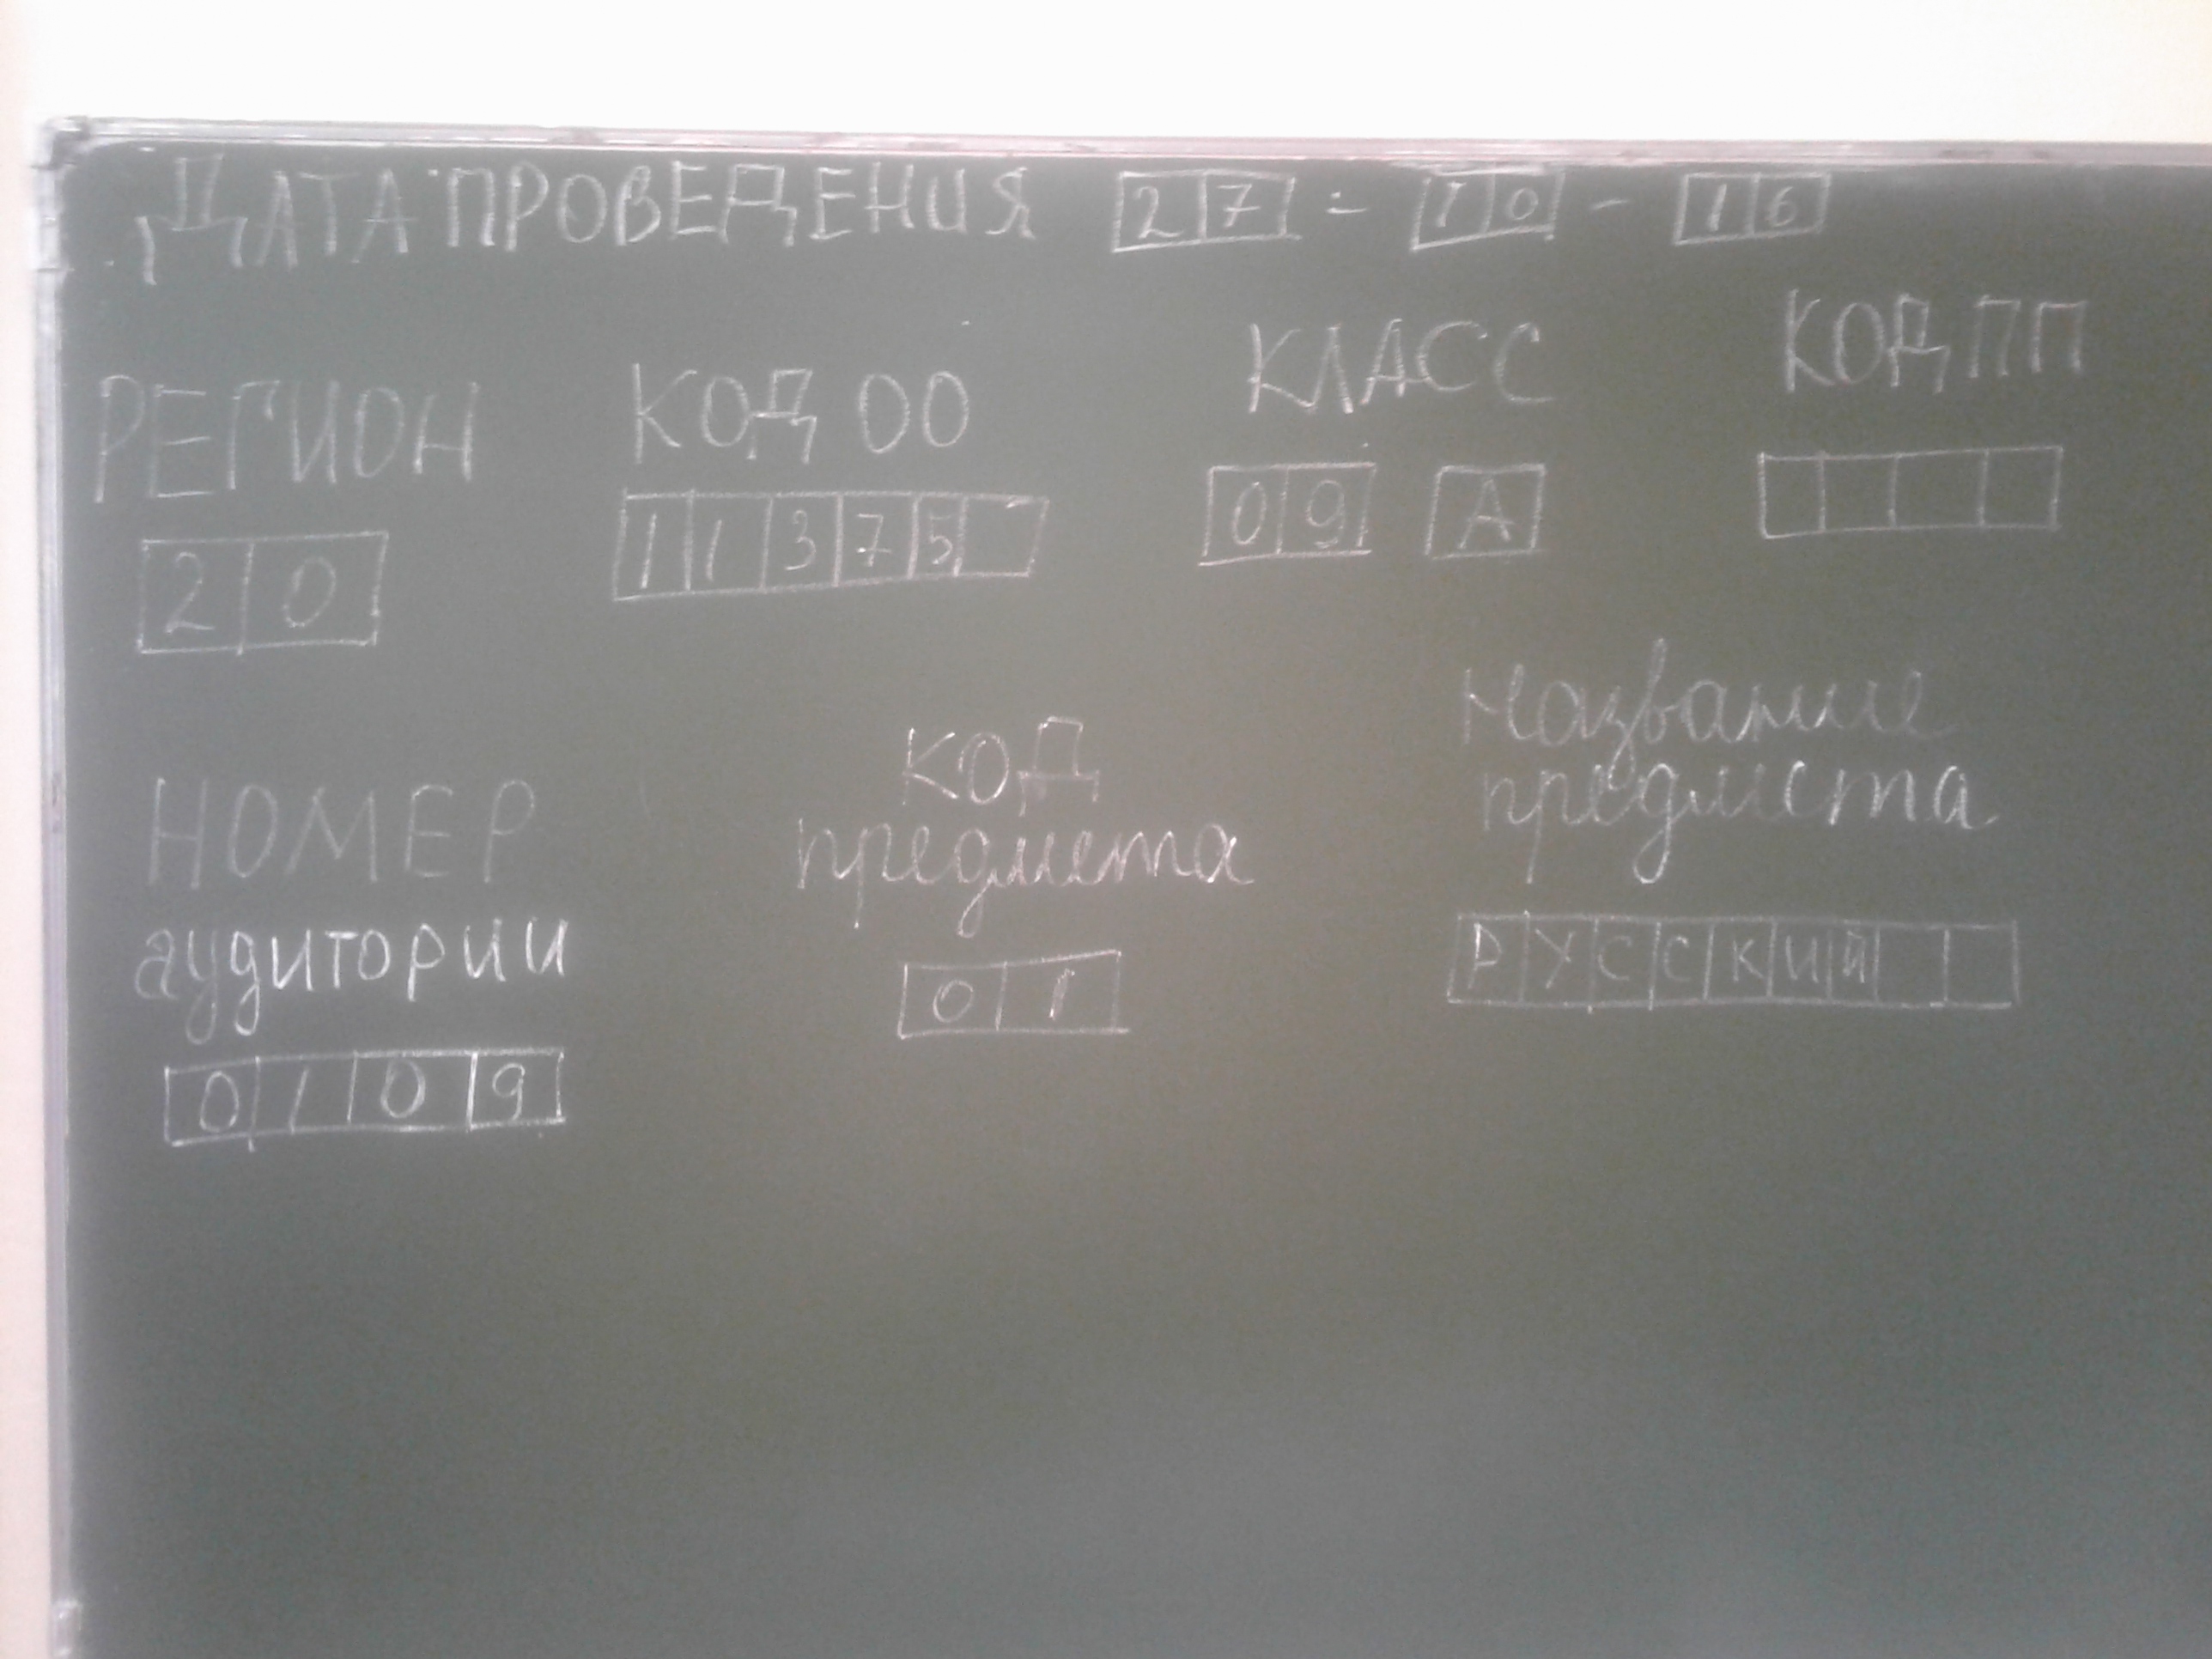 ДАТА ПРОВЕДЕНИЯ 27 - 10 - 16
РЕГИОН КОД ОО КЛАСС КОД ПП
20 11375 09 А
НОМЕР
аудитории
0109
КОД
предмета
01
Название
предмета
РУССКИЙ